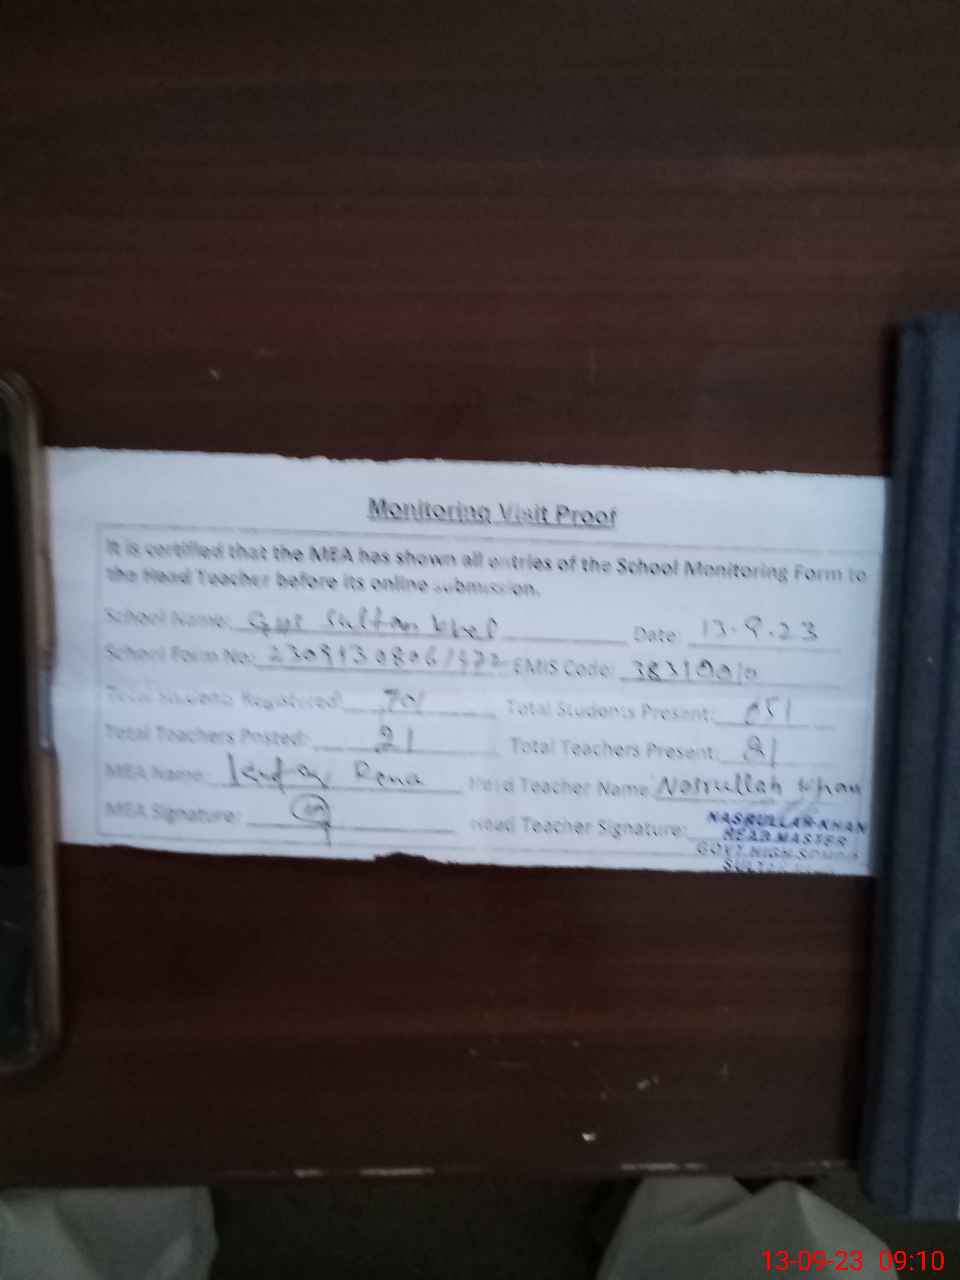 Monitoring Visit Proof
It is certified that the MEA has shown all entries of the School Monitoring Form to
the Head Teacher before its online submission.
School Name: Sultan Khel Date: 13.9.23
School Form No: EMIS Code:
Total Students Registered: 701 Total Students Present: 651
Total Teachers Posted: 21 Total Teachers Present: 21
MEA Name: Rena Head Teacher Name: Nasrullah Khan
MEA Signature: Head Teacher Signature:
NASRULLAH KHAN
HEAD MASTER
GOVT. HIGH
13-09-23 09:10